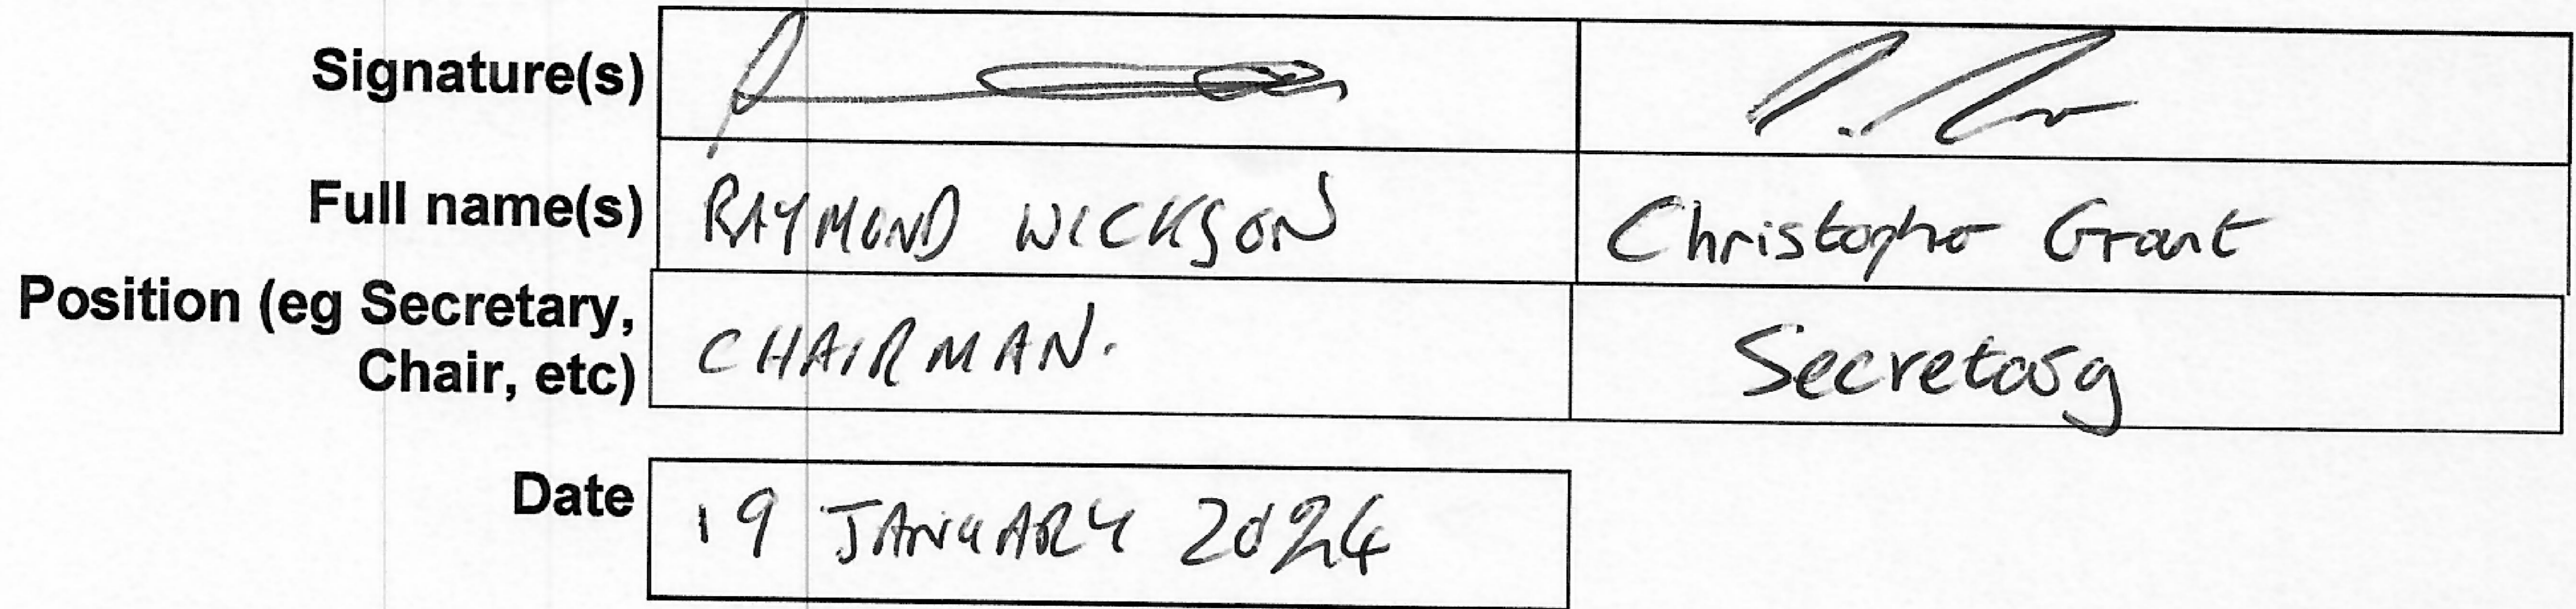 Signature(s)
Full name(s) RAYMOND WICKSON Christopher Grant
Position (eg Secretary, Chair, etc) CHAIRMAN. Secretary
Date 19 JANUARY 2024